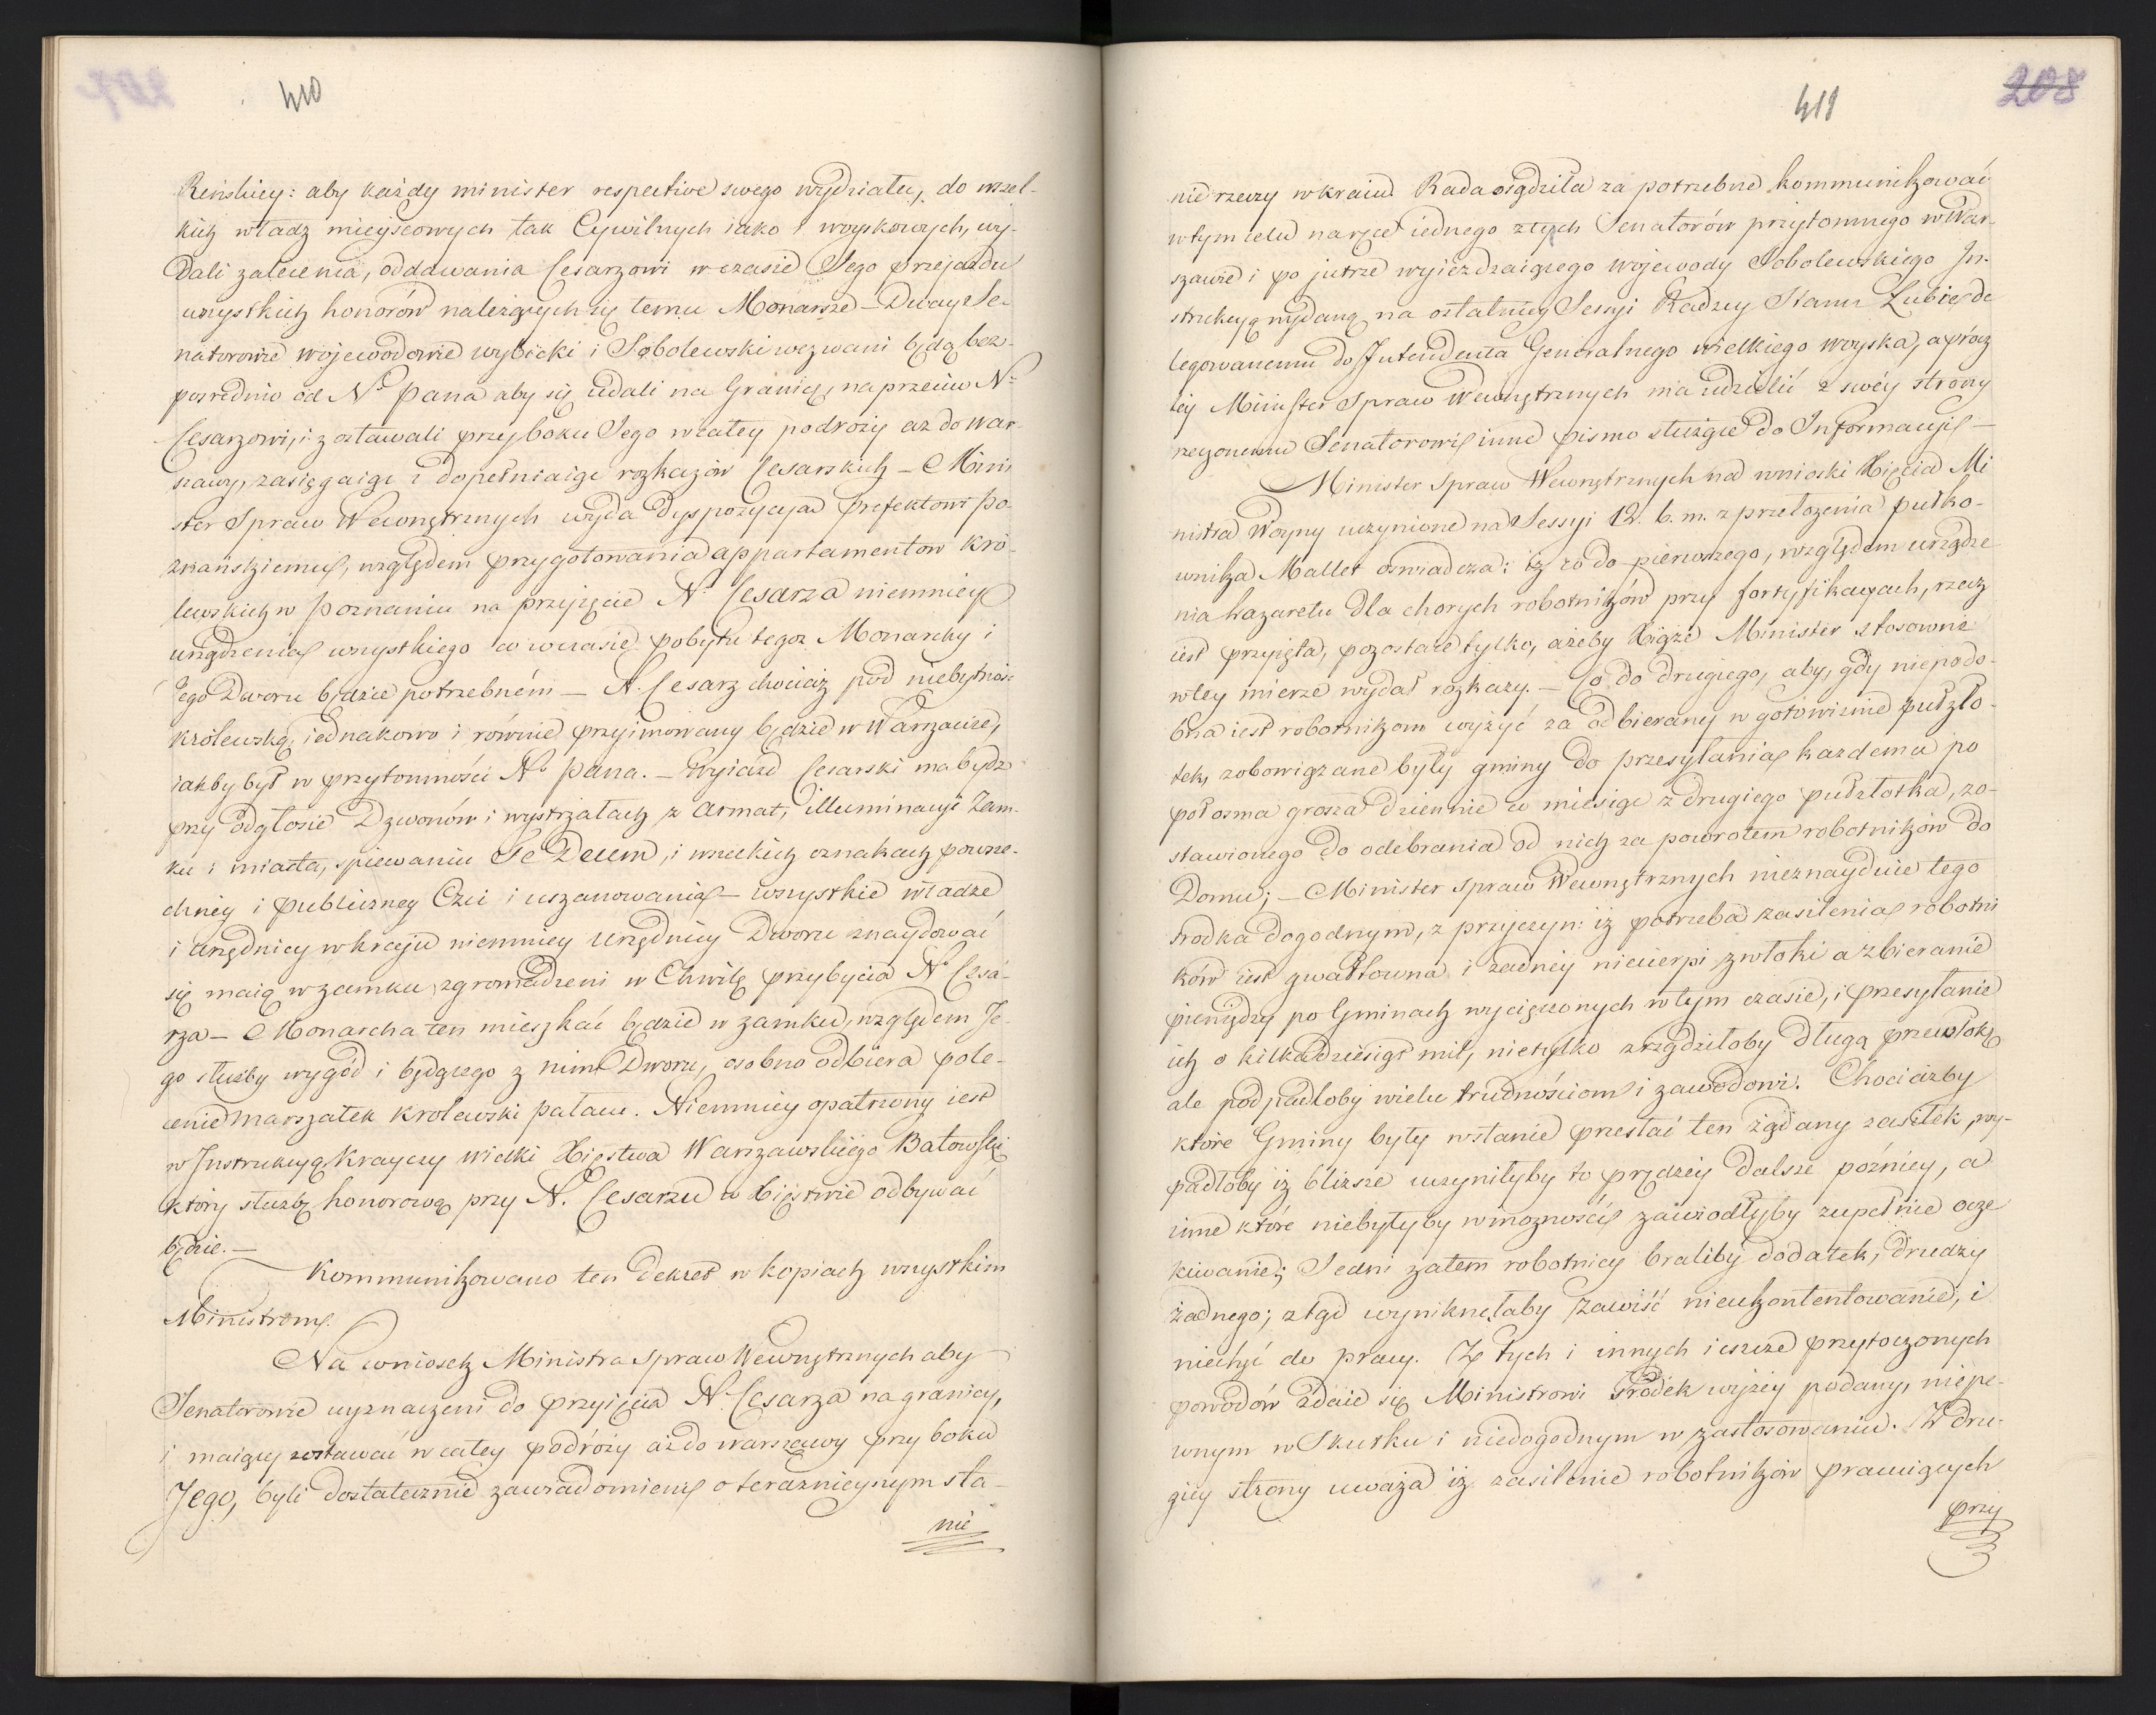 410
Reńskiey: aby każdy minister respective swego wydziału, do wszel-
kich władz mieyscowych tak Cywilnych iako i woyskowych, wy-
dali zalecenia, oddawania Cesarzowi w czasie Jego przejazdu
wszystkich honorów należących się temu Monarsze – Dway Se-
natorowie wojewodowie wybicki i Sobolewski wezwani będą bez-
posrednio od No Pana aby się udali na Granicę, naprzeciw No
Cesarzowi, i zostawali przy boku Jego w całey podroży aż do War-
szawy, zasięgaiąc i dopełniaiąc rozkazów Cesarskich – Mini
ster Spraw Wewnętrznych wyda dyspozycyą Prefektowi Po-
znańskiemu, względem przygotowania appartamentow Kró-
lewskich w Poznaniu na przyięcie No Cesarza niemniey
urządzenia wszystkiego co w czasie pobytu tegoż Monarchy i
Jego Dworu będzie potrzebném – N. Cesarz chociaż pod niebytność
Królewską, iednakowo i równie przyimowany będzie w Warszawie,
iakby był w przytomności No Pana. – Wyiazd Cesarski ma bydź
przy odgłosie Dzwonów i wystrzałach z armat, illuminacyi Zam-
ku i miasta, spiewaniu Te Deum, i wszelkich oznakach powsze-
chnéy i publiczney Czci i uszanowania – wszystkie władze
i urzędnicy w kraju niemniey urzędnicy Dworu znaydować
się maią w zamku zgromadzeni w Chwilę przybycia No Cesa-
rza – Monarcha ten mieszkać będzie w zamku, względem Je-
go służby wygód i będącego z nim Dworu, osobno odbiera pole-
cenie Marszałek królewski pałacu. Niemniey opatrzony iest
w Instrukcyą Krayczy wielki Xięstwa Warszawskiego Batowski
który służbę honorową przy N. Cesarzu w Xięstwie odbywać
będzie. –
Kommunikowano ten Dekret w kopiach wszystkim
Ministrom.
Na wniosek Ministra Spraw Wewnętrznych aby
Senatorowie wyznaczeni do przyięcia N. Cesarza na granicy,
i maiący zostawać w całey podróży aż do warszawy przy boku
Jego, byli dostatecznie zawiadomieni o teraznieyszym sta-
nie
411
208
nie rzeczy w kraiu. Rada osądziła za potrzebne kommunikować
w tym celu na ręce iednego z tych Senatorów przytomnego w War-
szawie i po jutrze wyieżdzaiącego wojewody Sobolewskiego In-
strukcyą wydaną na ostatniey Sessyi Radzcy Stanu Łubie de
legowanemu do Intendenta Generalnego wielkiego woyska, a prócz
tey Minister Spraw Wewnętrznych ma udzielić z swéy strony
rzeczonemu Senatorowi inne pismo służące do Informacyi –
Minister Spraw Wewnętrznych na wnioski Xięcia Mi
nistra Woyny uczynione na Sessyi 12. b. m. z przełożenia pułko-
wnika Mallet oswiadcza: iż co do pierwszego, względem urządze
nia Lazaretu dla chorych robotników przy fortyfikacyach, rzecz
iest przyięta, pozostaie tylko, ażeby Xiąże Minister stosowne
w tey mierze wydał rozkazy. – Co do drugiego, aby, gdy niepodo-
bna iest robotnikom wyżyć za odbierany w gotowiznie pułzło-
tek, zobowiązane były gminy do przesyłania każdemu po
poł osma grosza dziennie w miesiąc z drugiego pułzłotka, zo-
stawionego do odebrania od nich za powrotem robotników do
Domu; – Minister Spraw Wewnętrznych nieznayduie tego
srodka dogodnym, z przyczyn: iż potrzeba zasilenia robotni
ków iest gwałtowna i żadnéy niecierpi zwłoki a zbieranie
pieniędzy po Gminach wycięczonych w tym czasie, i przesyłanie
ich o kilkadziesiąt mil, nietylko zrządziłoby długą przewłokę
ale podpadłoby wielu trudnościom i zawodowi. Chociażby
które Gminy były w stanie przesłać ten żądany zasiłek, wy-
padłoby iż bliższe uczyniłyby to prędzéy dalsze późniey, a
inne które niebyłyby w możności zawiodłyby zupełnie ocze
kiwanie; Jedni zatem robotnicy braliby dodatek, drudzy
żadnego; ztąd wyniknęłaby zawiść nieukontentowanie, i
niechęć do pracy. Z tych i innych ieszcze przytoczonych
powodów zdaie się Ministrowi środek wyżey podany, niepe-
wnym w Skutku i niedogodnym w zastosowaniu. Z dru-
giey strony uważa iż zasilenie robotników pracuiących
przy